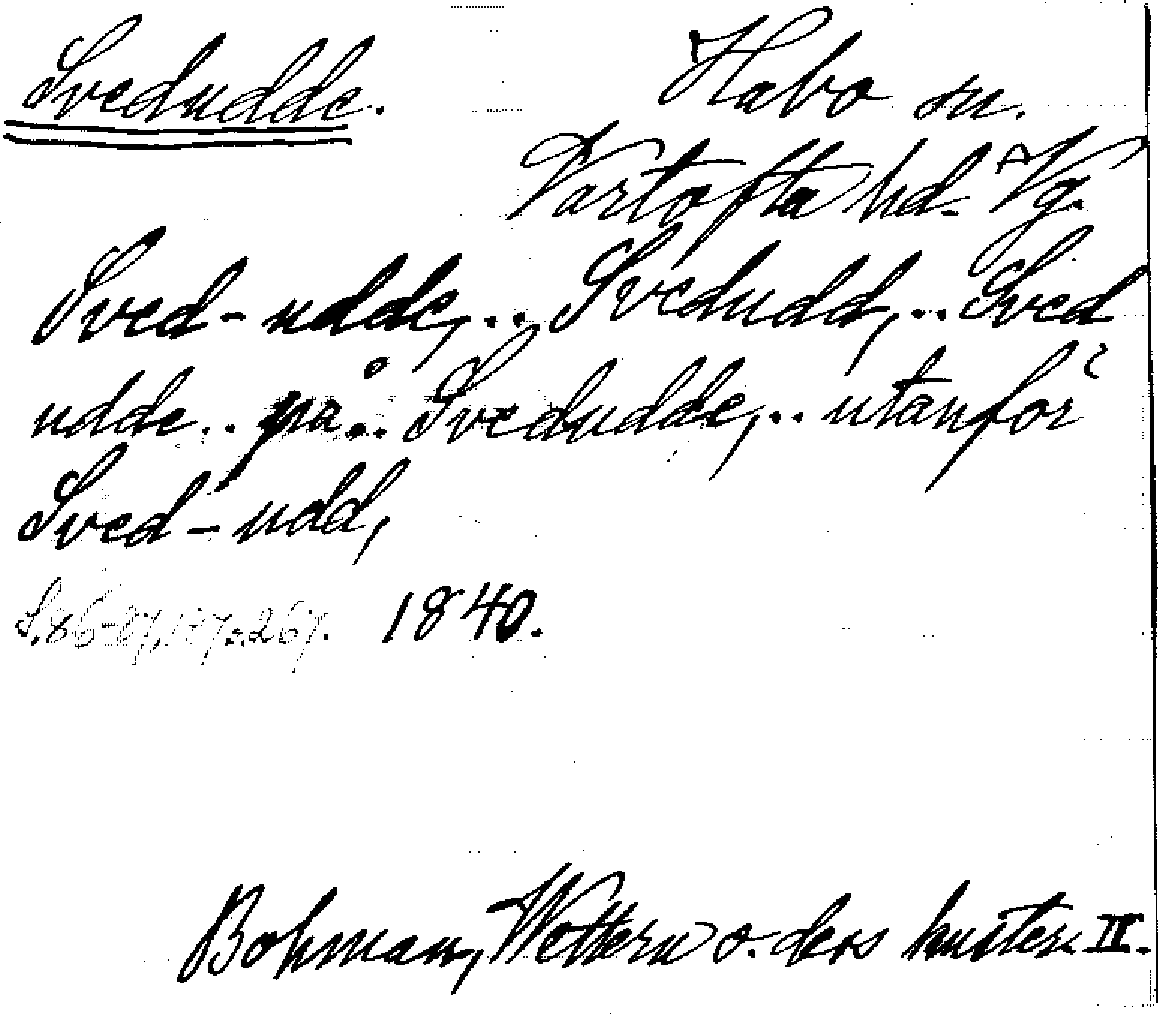 Svedudde.
Habo sn.
Vartofta hd. Vg.
Sved-udde,.. Svedudd,.. Sved
udde.. på.. Svedudde,.. utanför
Sved-udd,
S. 86-87, 187 o. 267. 1840.
Bohman, Wettern o. dess kuster II.